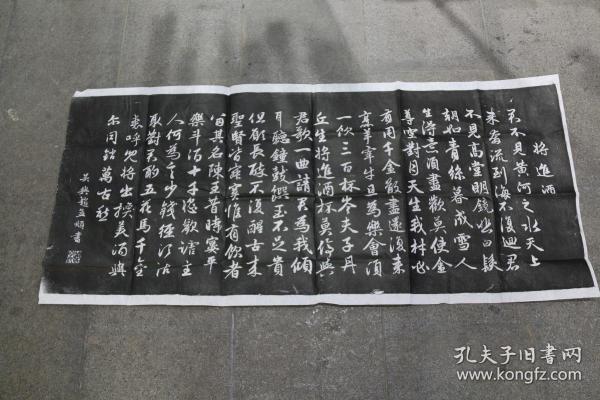 将進酒
君不見黄河之水天上
来奔流到海不復廻君
不見高堂明鏡悲白髮
朝如青絲暮成雪人
生得意須盡歡莫使金
尊空對月天生我材必
有用千金散盡還復来
烹羊宰牛且為樂會須
一飲三百杯岑夫子丹
丘生将進酒杯莫停與
君歌一曲請君為我傾
耳聽鐘鼓饌玉不足貴
但願長醉不復醒古来
聖賢皆寂寞惟有飲者
留其名陳王昔時宴平
樂斗酒十千恣歡謔主
人何為言少錢徑須沽
取對君酌五花馬千金
裘呼兒将出換美酒與
尔同銷萬古愁
吴興趙孟頫書
孔夫子旧书网
www.kongfz.com